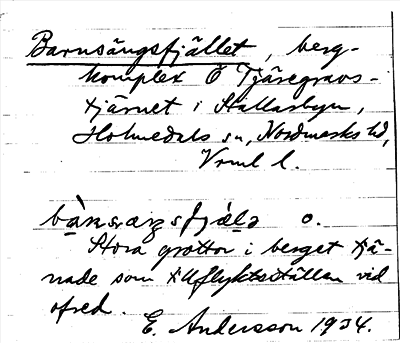 Barnsängsfjället, berg-
komplex Ö Tjäregravs-
tjärnet i Stallarbyn,
Holmedals sn, Nordmarks hd,
Vrml l.
o.
Stora grottor i berget tjä-
nade som tillflyktsställen vid
ofred.
E. Andersson 1934.